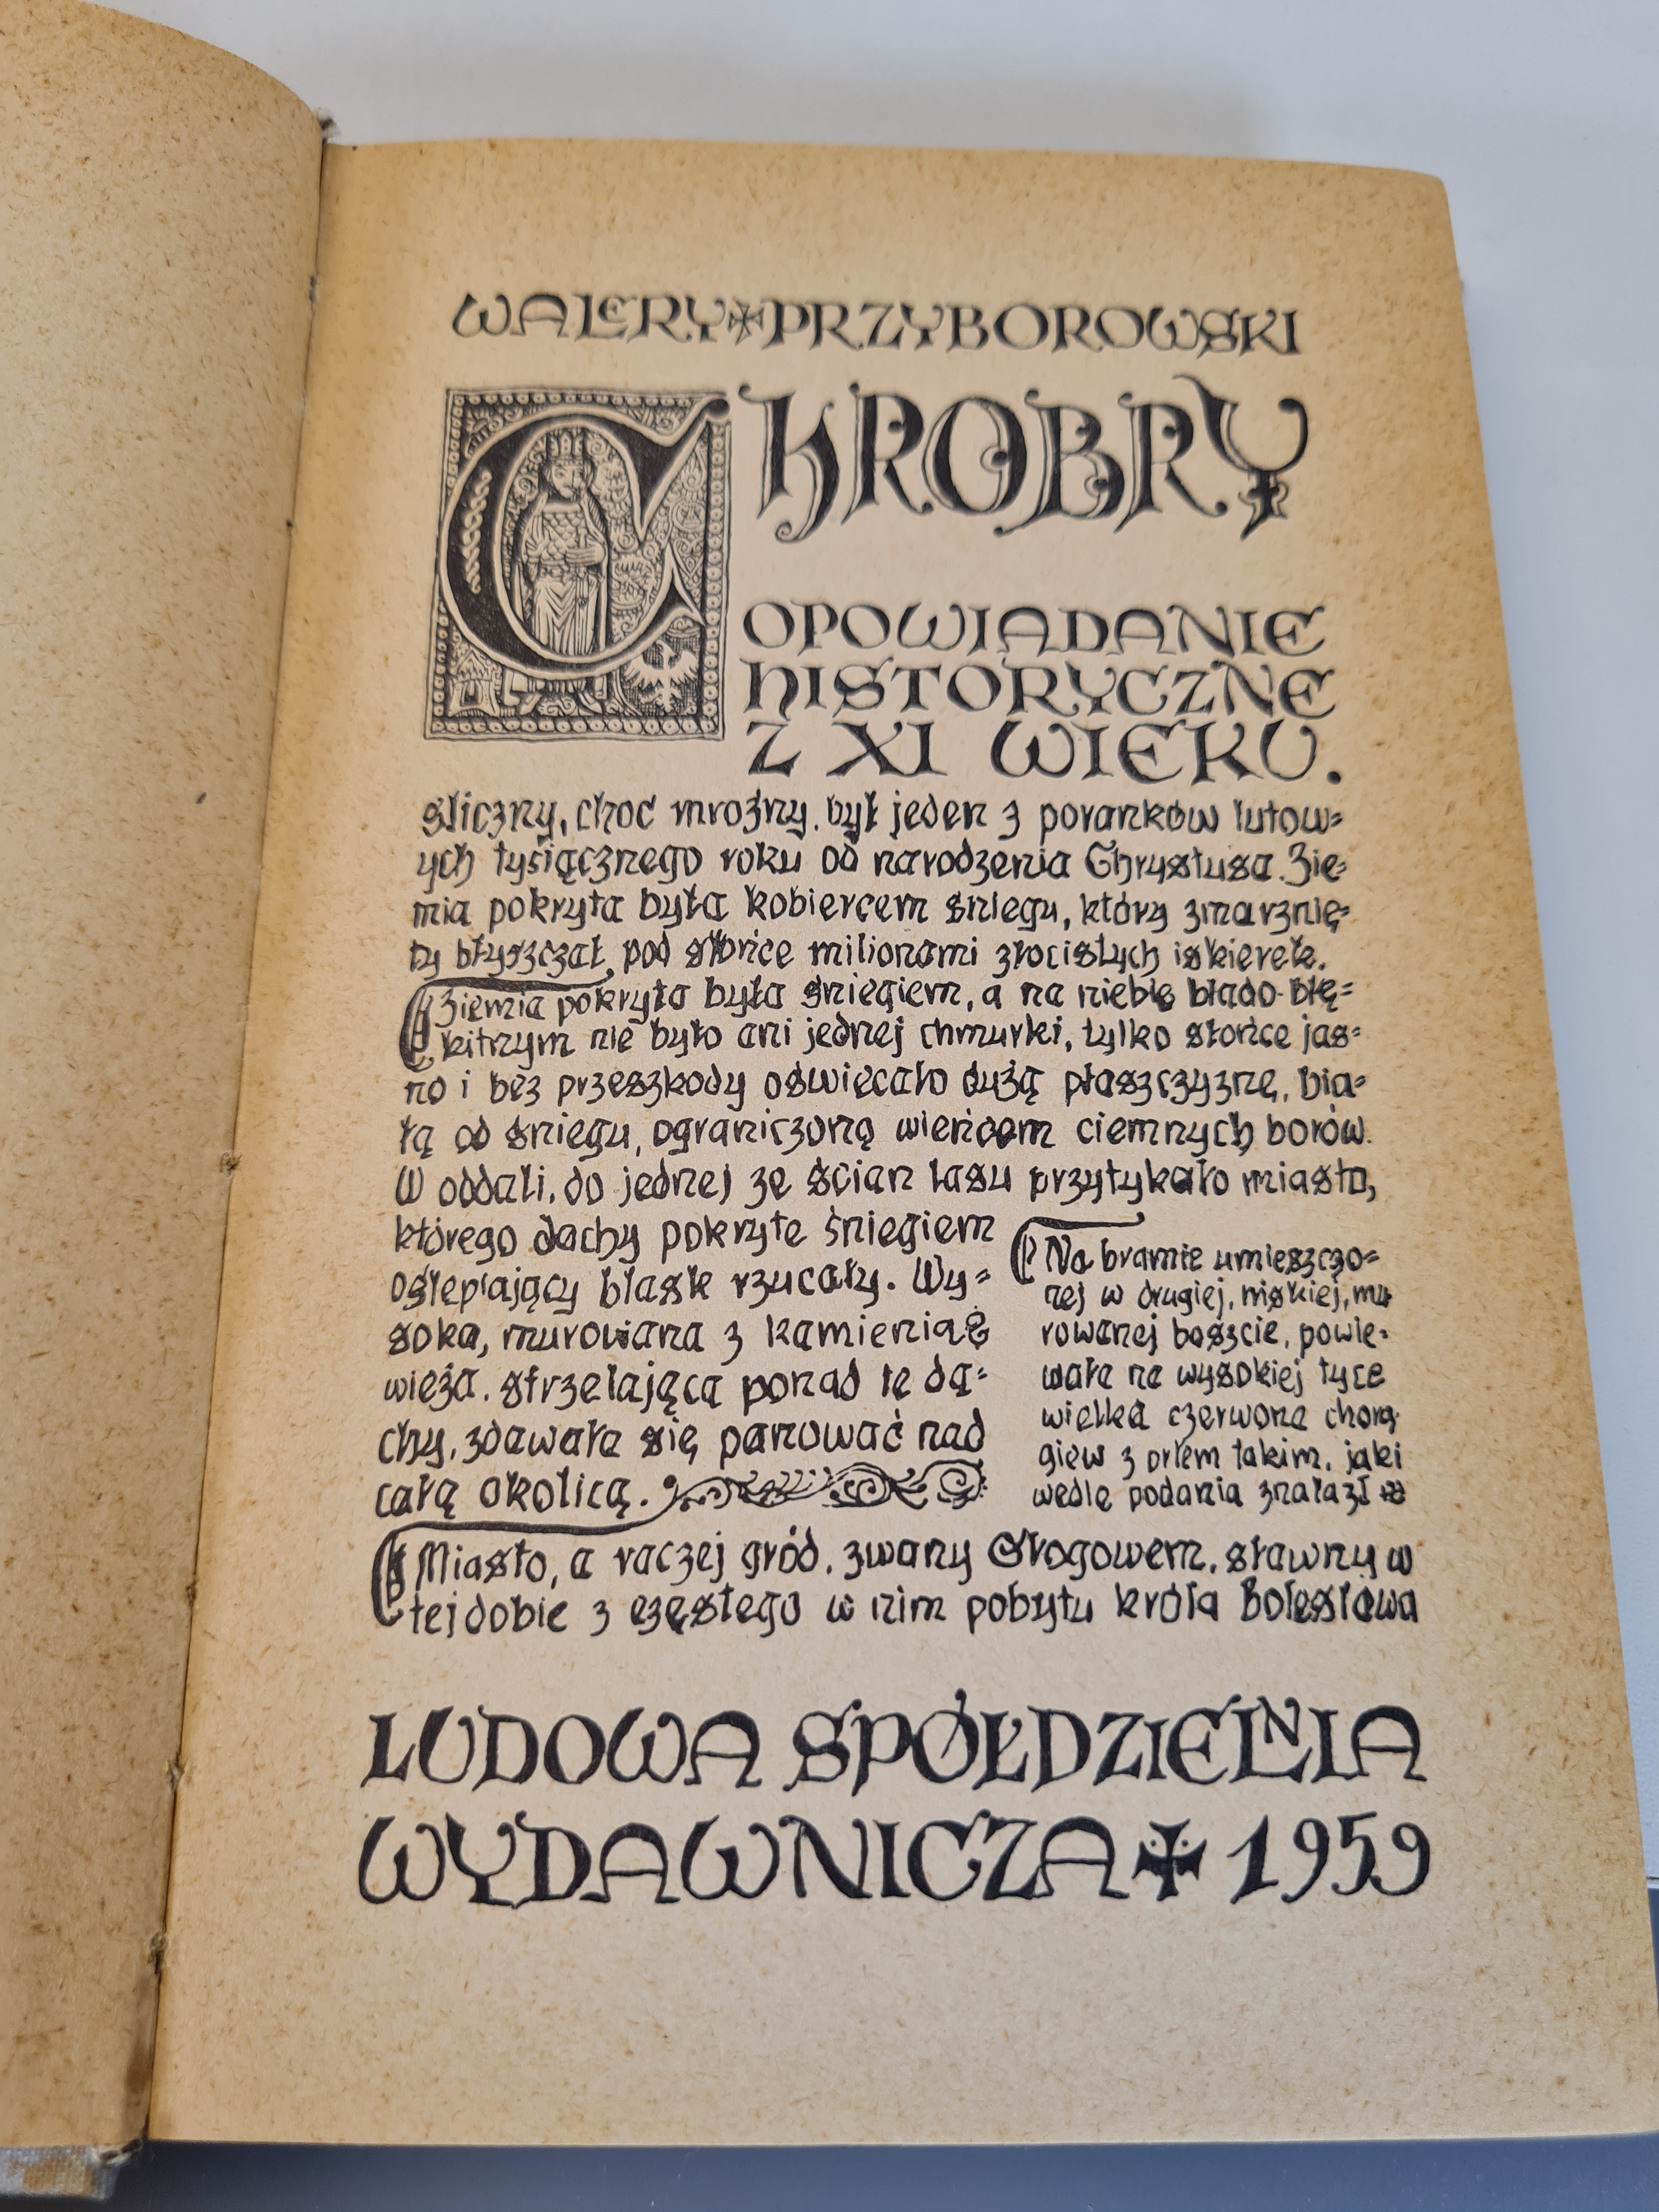 WALERY✠PRZYBOROWSKI
CHROBRY
OPOWIADANIE
HISTORYCZNE
Z XI WIEKU.
śliczny, choć mroźny, był jeden z poranków lutow=
ych tysiącznego roku od narodzenia Chrystusa. Zie=
mia pokryta była kobiercem śniegu, który zmarznię=
ty błyszczał, pod słońce milionami złocistych iskierek.
Ziemia pokryta była śniegiem, a na niebie blado-błę=
kitnym nie było ani jednej chmurki, tylko słońce jas=
no i bez przeszkody oświecało dużą płaszczyznę, bia=
łą od śniegu, ograniczoną wieńcem ciemnych borów.
W oddali, do jednej ze ścian lasu przytykało miasto,
którego dachy pokryte śniegiem
oślepiający blask rzucały. Wy=
soka, murowana z kamienia
wieża, strzelająca ponad te da=
chy, zdawała się panować nad
całą okolicą.
Na bramie umieszczo=
nej w drugiej, niskiej, mu
rowanej baszcie, powie=
wała na wysokiej tyce
wielka czerwona chorą-
giew z orłem takim, jaki
wedle podania znalazł
Miasto, a raczej gród, zwany Głogowem, sławny w
tej dobie z częstego w nim pobytu króla Bolesława
LUDOWA SPÓŁDZIELNIA
WYDAWNICZA✠1959